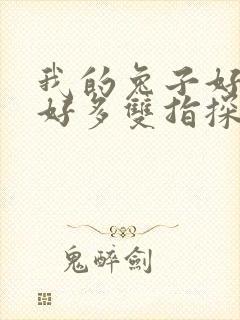 我的兔子好
好多雙指探
鬼醉劍